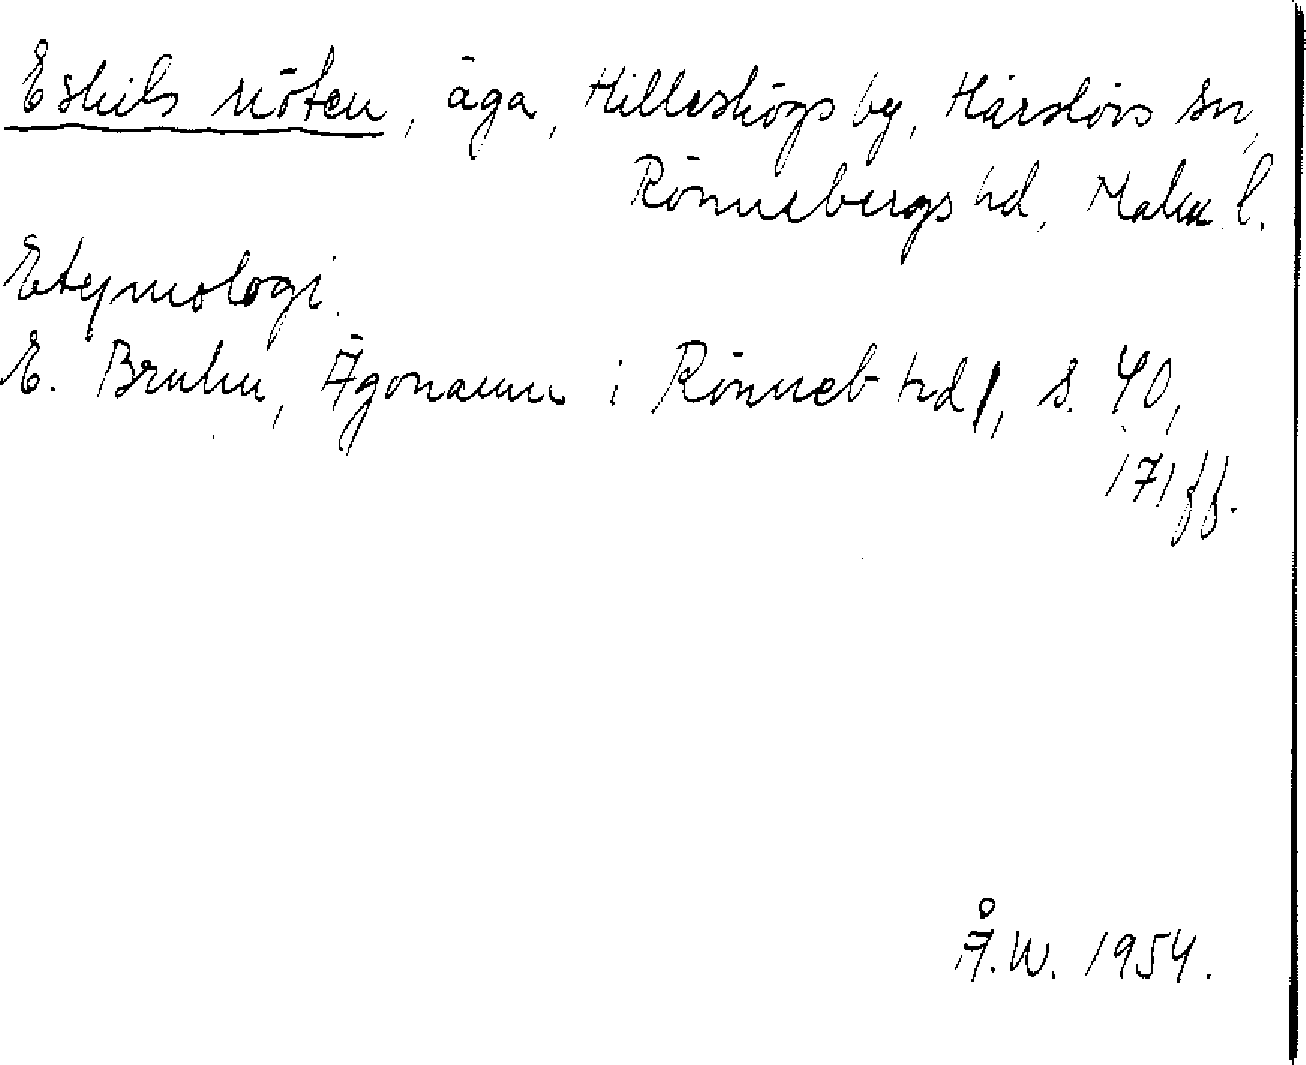 Eskils nöten, äga, Hilleshögs by, Härslövs sn,
Rönnebergs hd, Malm. l.
Etymologi.
E. Bruhn, Ägonamn i Rönneb hd 1, s. 40,
171 ff.
Å.W. 1954.